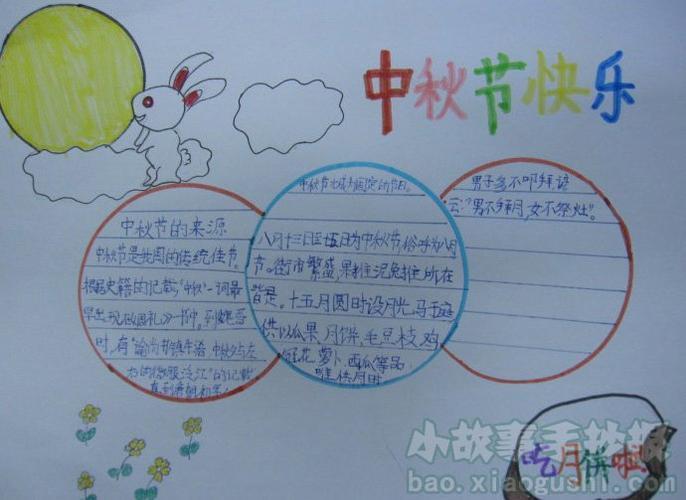 中秋节快乐
中秋节的来源
中秋节是我国的传统佳节。
根据史籍的记载，"中秋"一词最
早出现《周礼》一书中。到魏晋
时，有"谕尚书镇牛渚，中秋夕与左
右微服泛江"的记载
直到唐朝初年
中秋节才成为固定的节日。
八月十三日至十五日为中秋节，俗呼为八月
节。街市繁盛，果摊泥兔摊所在
皆是。十五月圆时设月光马于庭
供以瓜果，月饼，毛豆枝，鸡
冠花，萝卜，西瓜等品
供月时
男子多不叩拜，谚
云："男不拜月，女不祭灶"。
吃月饼啦
小故事手抄报
bao.xiaogushi1.com